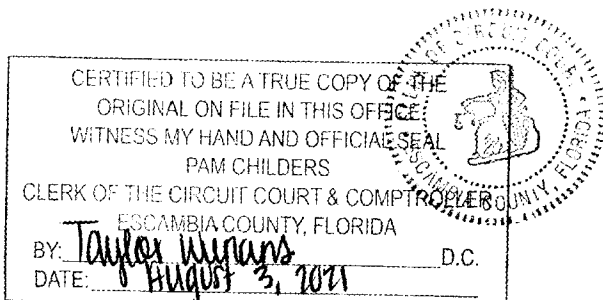 CERTIFIED TO BE A TRUE COPY OF THE
ORIGINAL ON FILE IN THIS OFFICE
WITNESS MY HAND AND OFFICIAL SEAL
PAM CHILDERS
CLERK OF THE CIRCUIT COURT & COMPTROLLER
ESCAMBIA COUNTY, FLORIDA
BY: Taylor D.C.
DATE: August 3, 2021
OF CIRCUIT COURT
ESCAMBIA COUNTY, FLORIDA